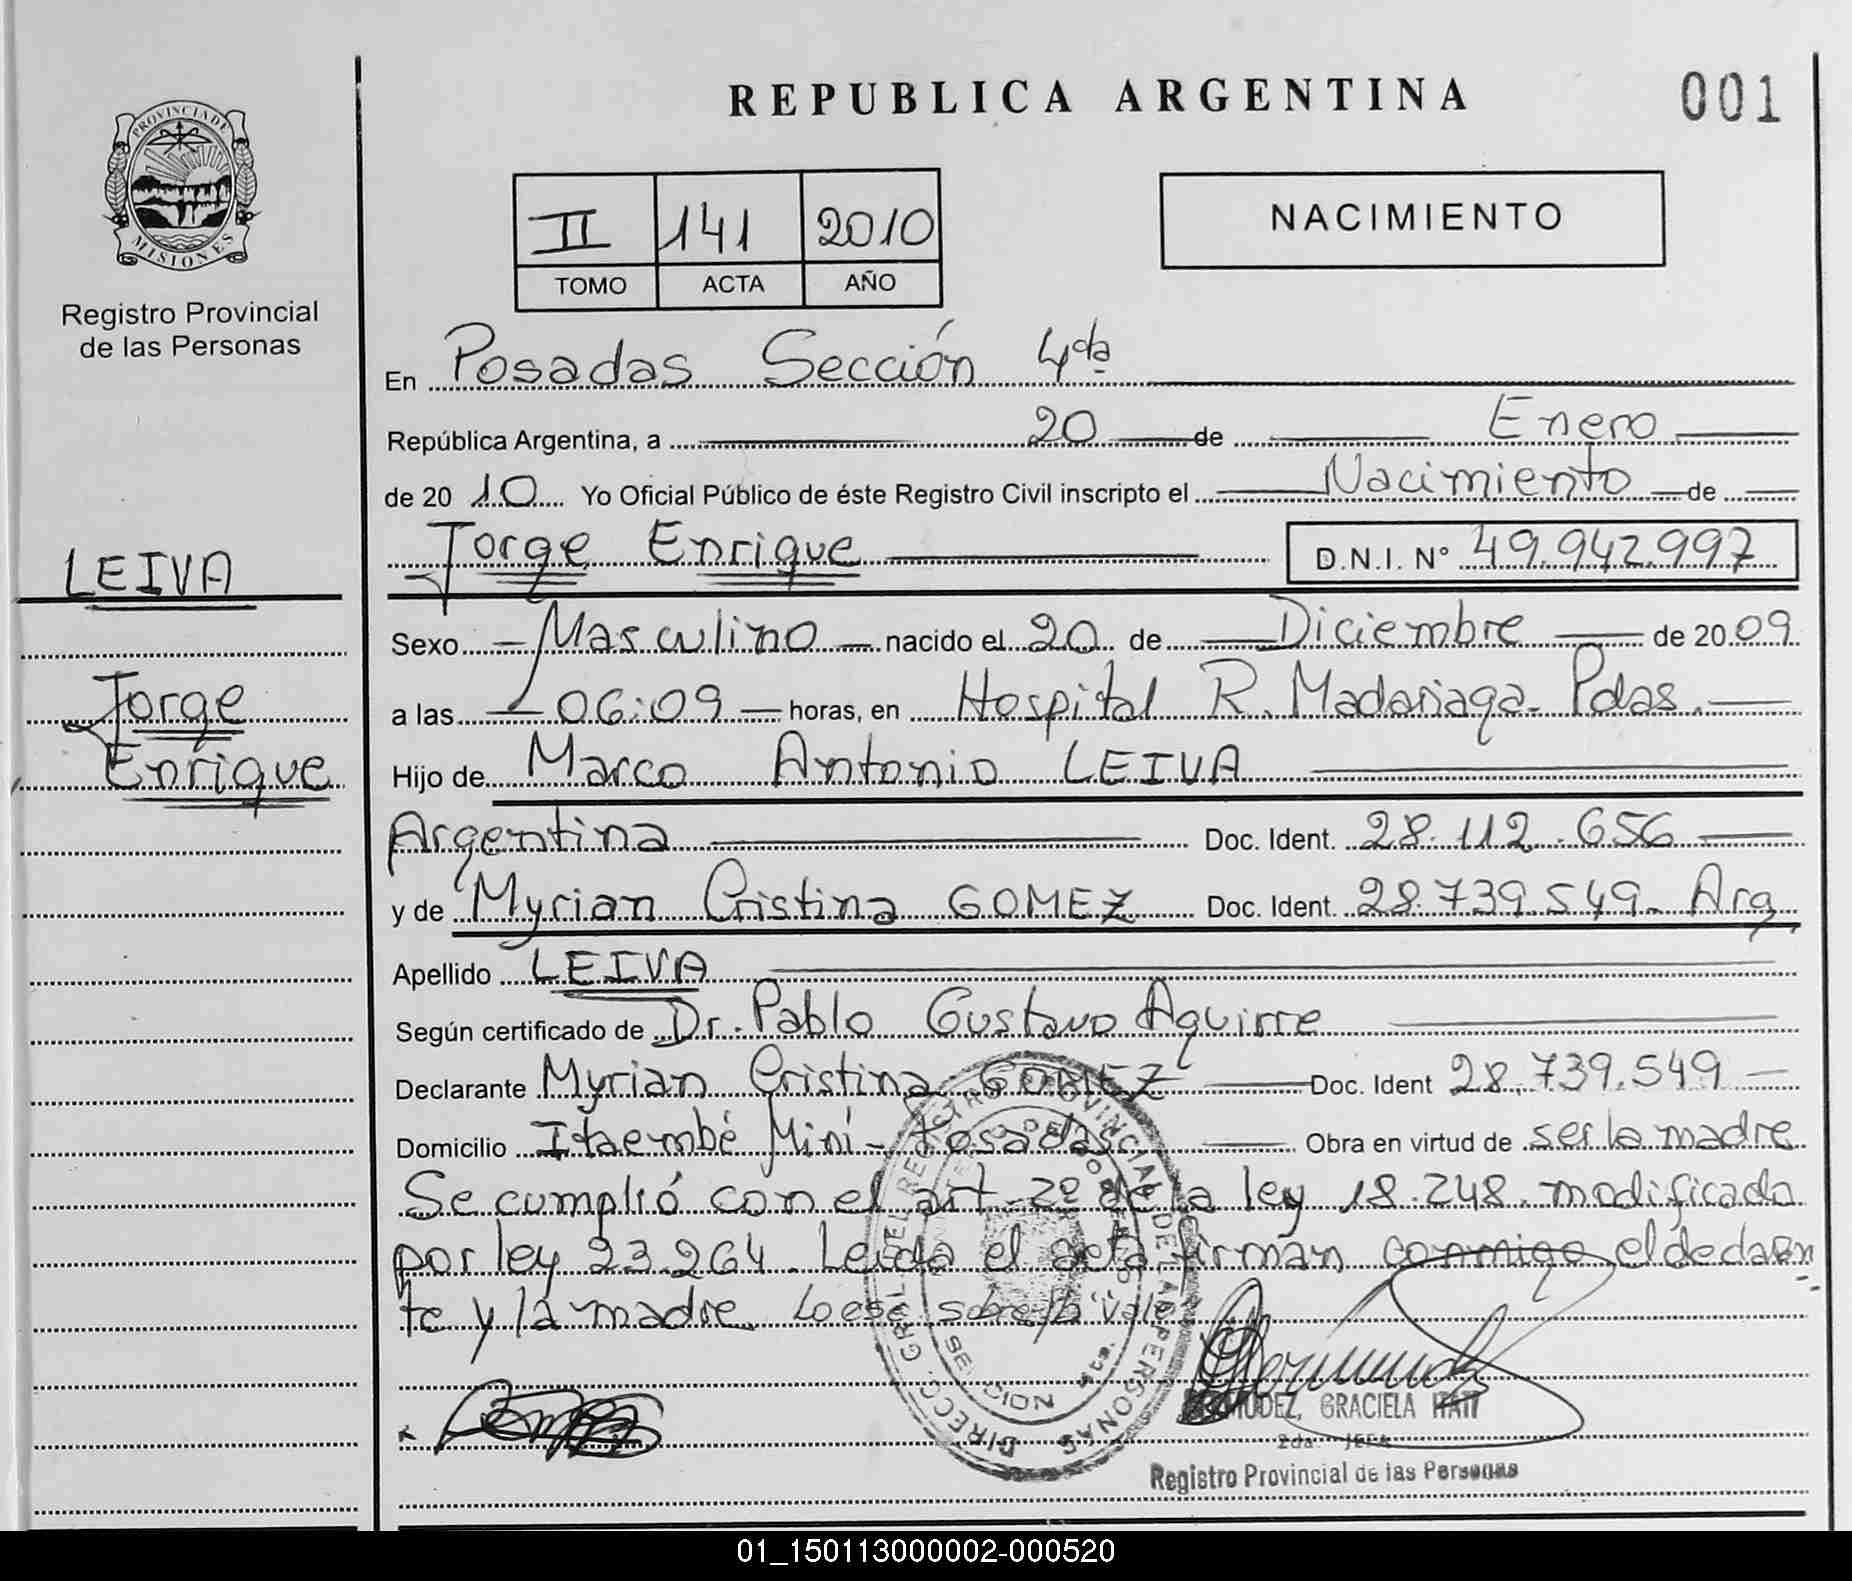 REPUBLICA ARGENTINA
001
PROVINCIA DE
MISIONES
Registro Provincial
de las Personas
II 141 2010
TOMO ACTA AÑO
NACIMIENTO
En Posadas Sección 4da
República Argentina, a 20 de Enero
de 20 10 Yo Oficial Público de éste Registro Civil inscripto el Nacimiento de
Jorge Enrique D.N.I. N° 49.942.997
LEIVA
Jorge
Enrique
Sexo Masculino nacido el 20 de Diciembre de 20 09
a las 06:09 horas, en Hospital R. Madariaga. Pdas.
Hijo de Marco Antonio LEIVA
Argentina Doc. Ident. 28.112.656
y de Myrian Cristina GOMEZ Doc. Ident. 28.739.549. Arg.
Apellido LEIVA
Según certificado de Dr. Pablo Gustavo Aguirre
Declarante Myrian Cristina GOMEZ Doc. Ident 28.739.549
Domicilio Itaembé Miní - Posadas Obra en virtud de ser la madre
Se cumplió con el art. 2º de la ley 18.248. modificada
por ley 23.264. Leida el acta firman conmigo el declaran
te y la madre. Lo ese sobre "la" Vale
DIRECC. GRAL. DEL REGISTRO PROVINCIAL DE LAS PERSONAS
SECCION
BERMUDEZ, GRACIELA ITATI
2da. JEFA
Registro Provincial de las Personas
01_150113000002-000520